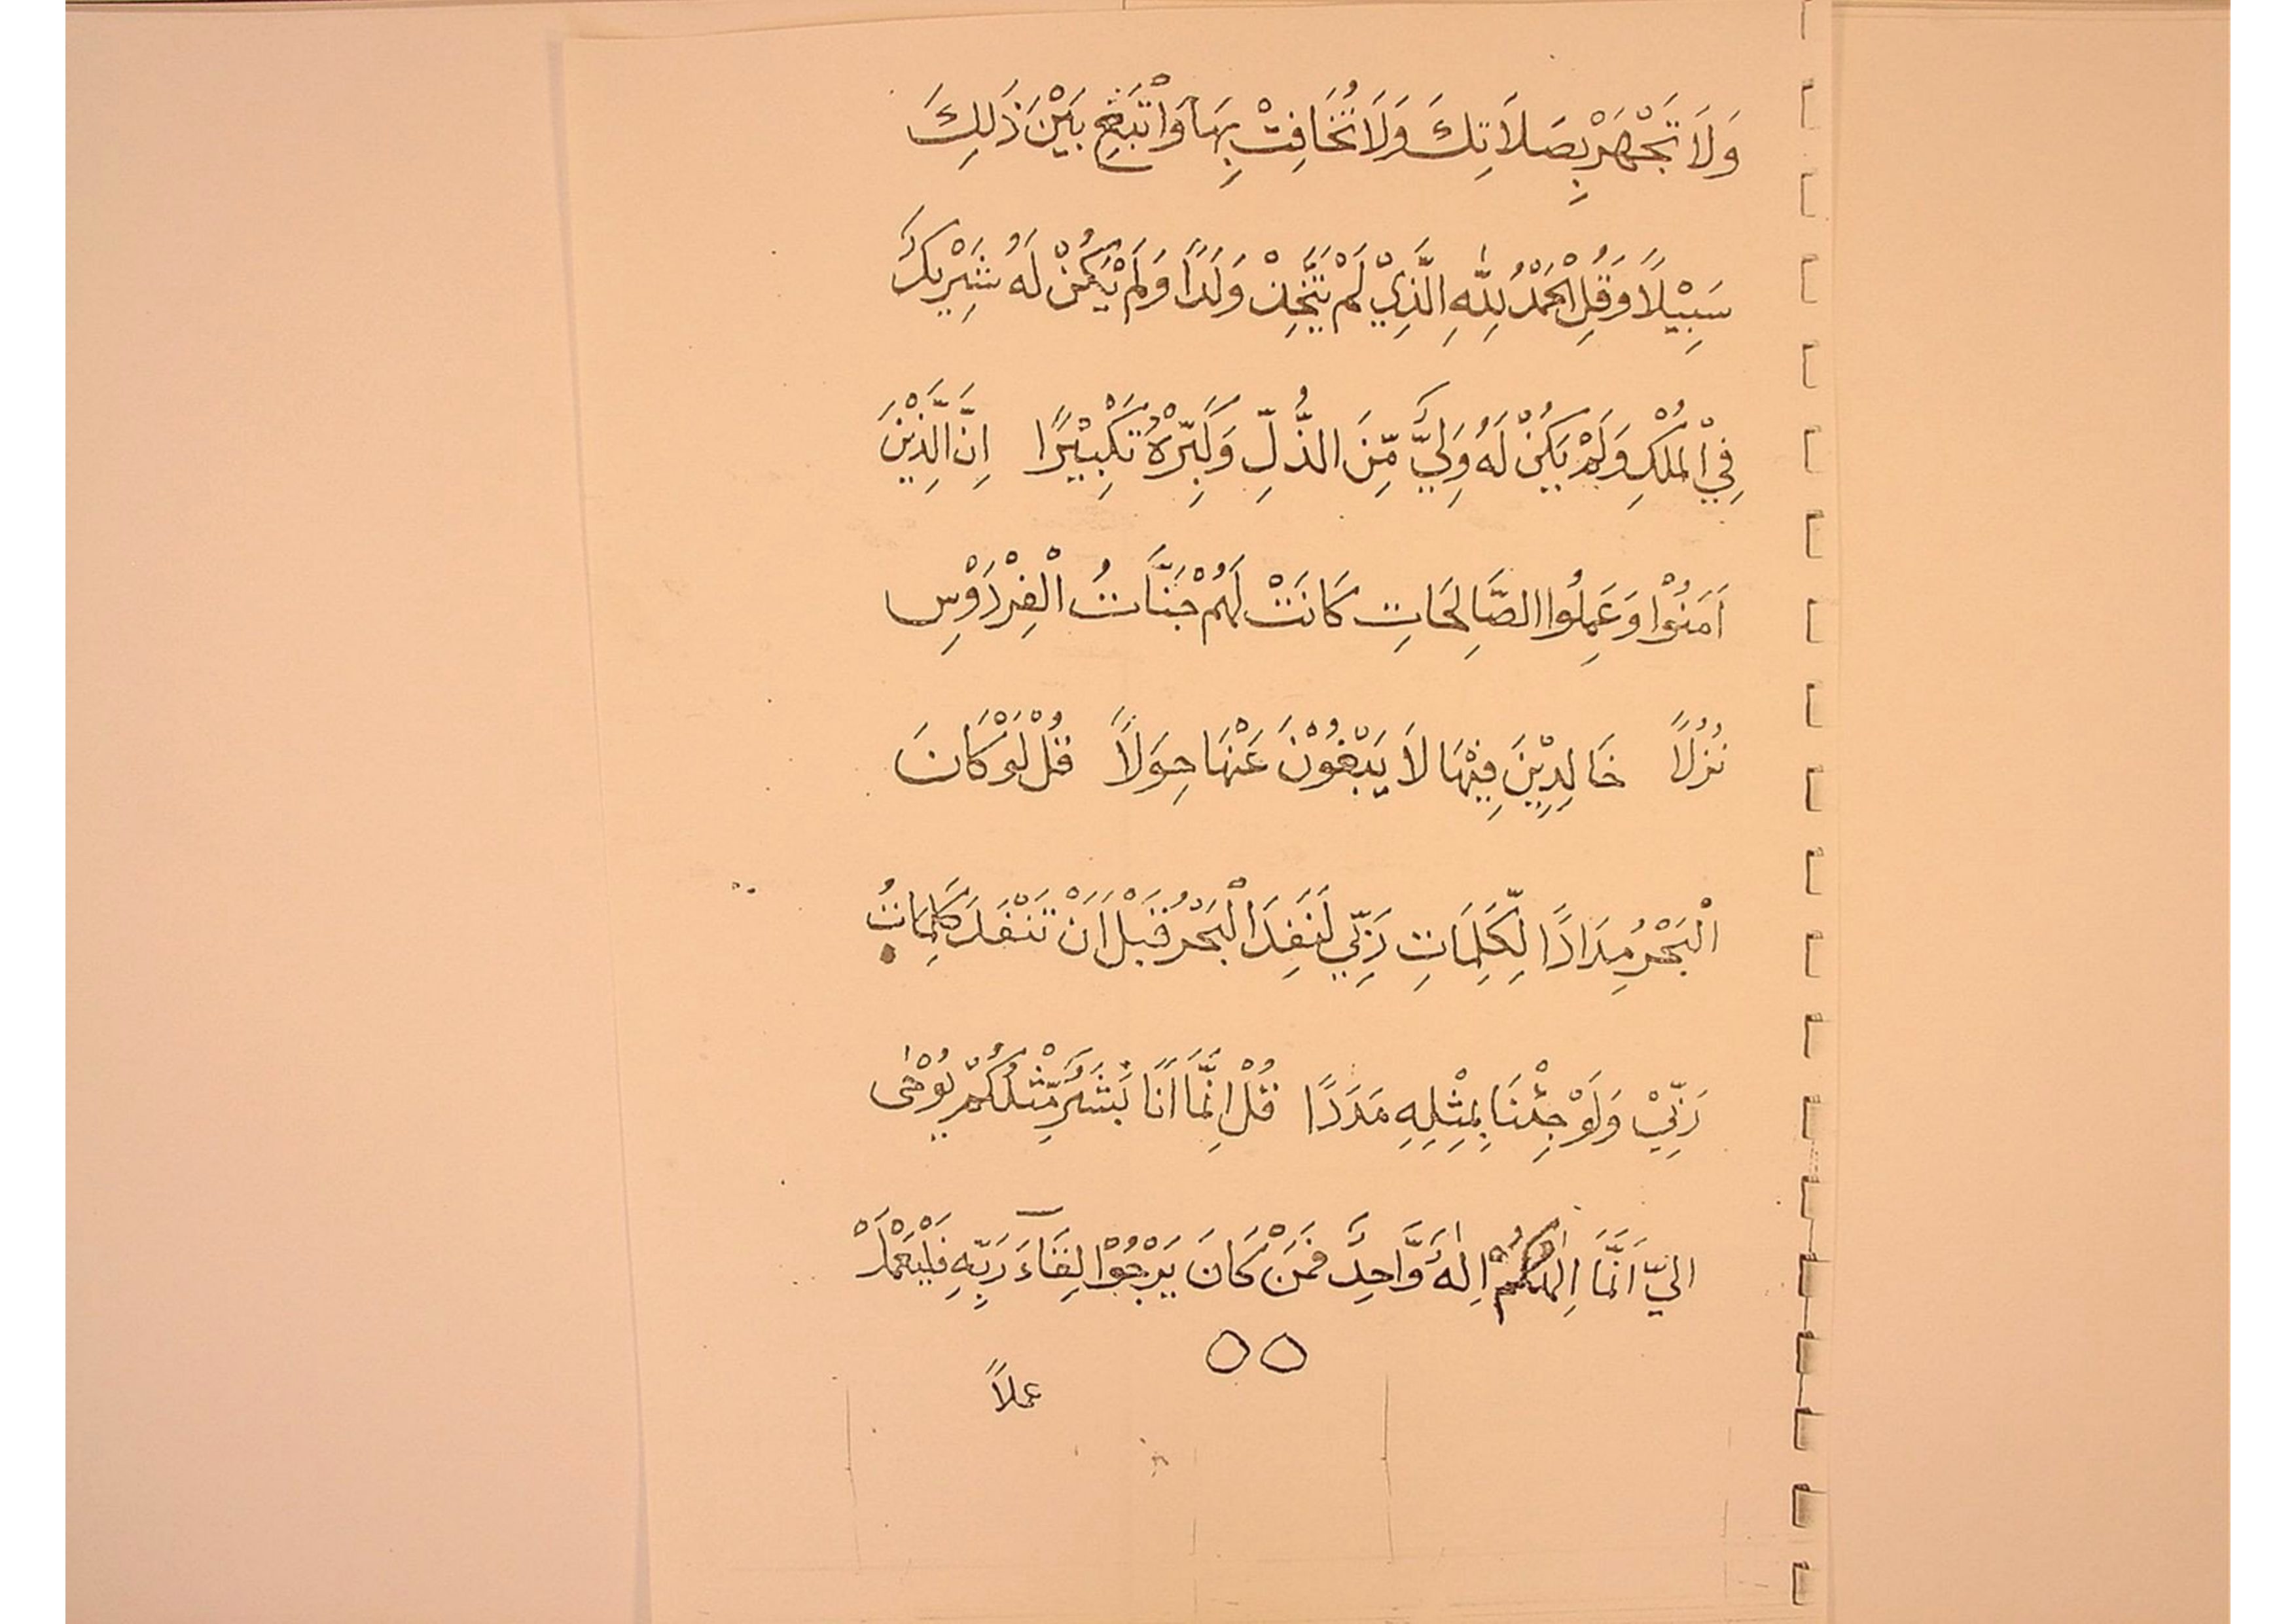 وَلَا تَجْهَرْ بِصَلَاتِكَ وَلَا تُخَافِتْ بِهَا وَابْتَغِ بَيْنَ ذَلِكَ
سَبِيْلًا وَقُلِ الْحَمْدُ لِلّٰهِ الَّذِيْ لَمْ يَتَّخِذْ وَلَدًا وَلَمْ يَكُنْ لَهُ شَرِيْكٌ
فِي الْمُلْكِ وَلَمْ يَكُنْ لَهُ وَلِيٌّ مِّنَ الذُّلِّ وَكَبِّرْهُ تَكْبِيْرًا اِنَّ الَّذِيْنَ
اَمَنُوْا وَعَمِلُوا الصَّالِحَاتِ كَانَتْ لَهُمْ جَنَّاتُ الْفِرْدَوْسِ
نُزُلًا خَالِدِيْنَ فِيْهَا لَا يَبْغُوْنَ عَنْهَا حِوَلًا قُلْ لَوْ كَانَ
الْبَحْرُ مِدَادًا لِّكَلِمَاتِ رَبِّي لَنَفِدَ الْبَحْرُ قَبْلَ اَنْ تَنْفَدَ كَلِمَاتُ
رَبِّيْ وَلَوْ جِئْنَا بِمِثْلِهِ مَدَدًا قُلْ اِنَّمَا اَنَا بَشَرٌ مِّثْلُكُمْ يُوْحٰى
اِلَيَّ اَنَّمَا اِلٰهُكُمْ اِلٰهٌ وَّاحِدٌ فَمَنْ كَانَ يَرْجُوْا لِقَآءَ رَبِّهِ فَلْيَعْمَلْ
٥٥
عملاً